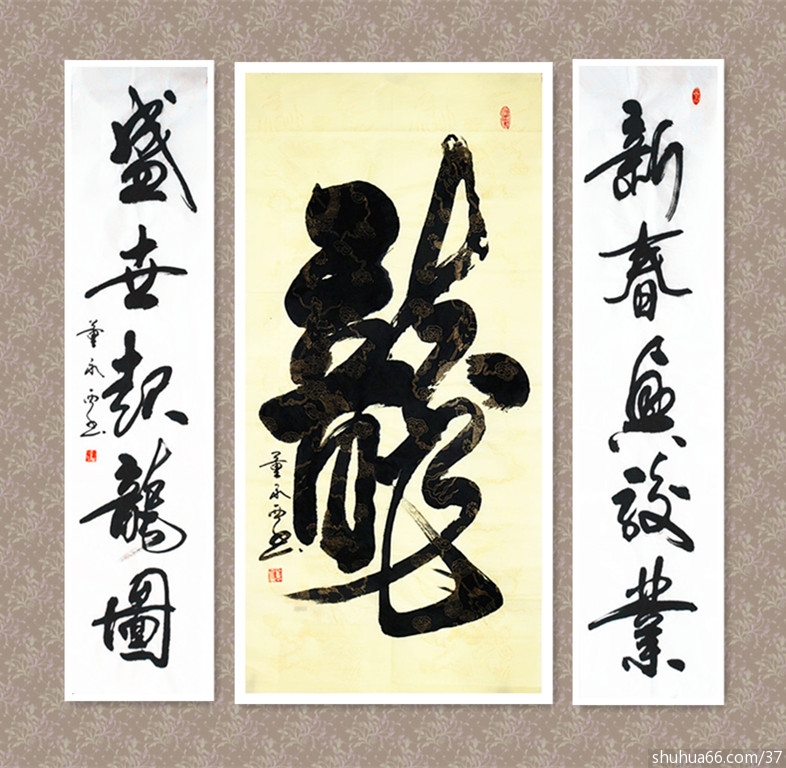 新春興駿業
龍
董永西书
盛世起龍圖
董永西书
shuhua66.com/37